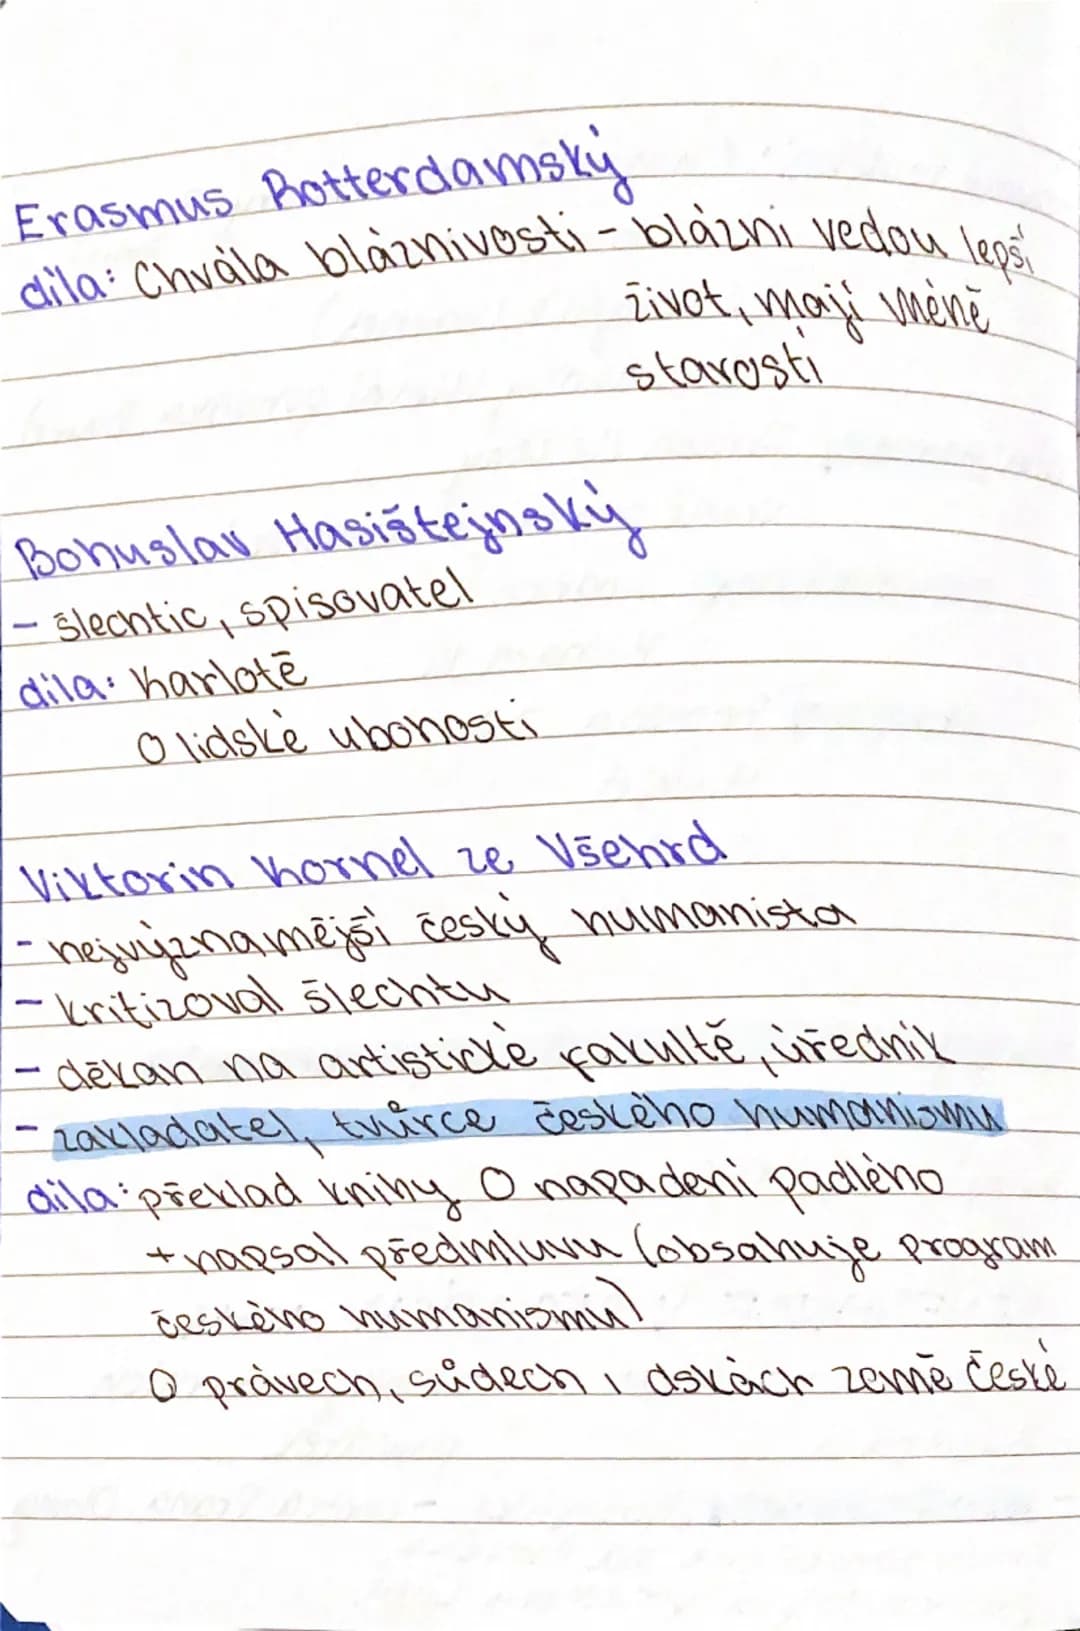 Erasmus Rotterdamský
díla: Chvála bláznivosti - blázni vedou lepší
život, mají méně
starostí
Bohuslav Hasištejnský
- šlechtic, spisovatel
díla: Karlotě
O lidské ubohosti
Viktorin Kornel ze Všehrd
- nejvýznamější český humanista
- kritizoval šlechtu
- děkan na artistické fakultě, úředník
- zakladatel, tvůrce českého humanismu
díla: překlad knihy O napadení padlého
+ napsal předmluvu (obsahuje program
českého humanismu)
O právech, súdech i dskách země české